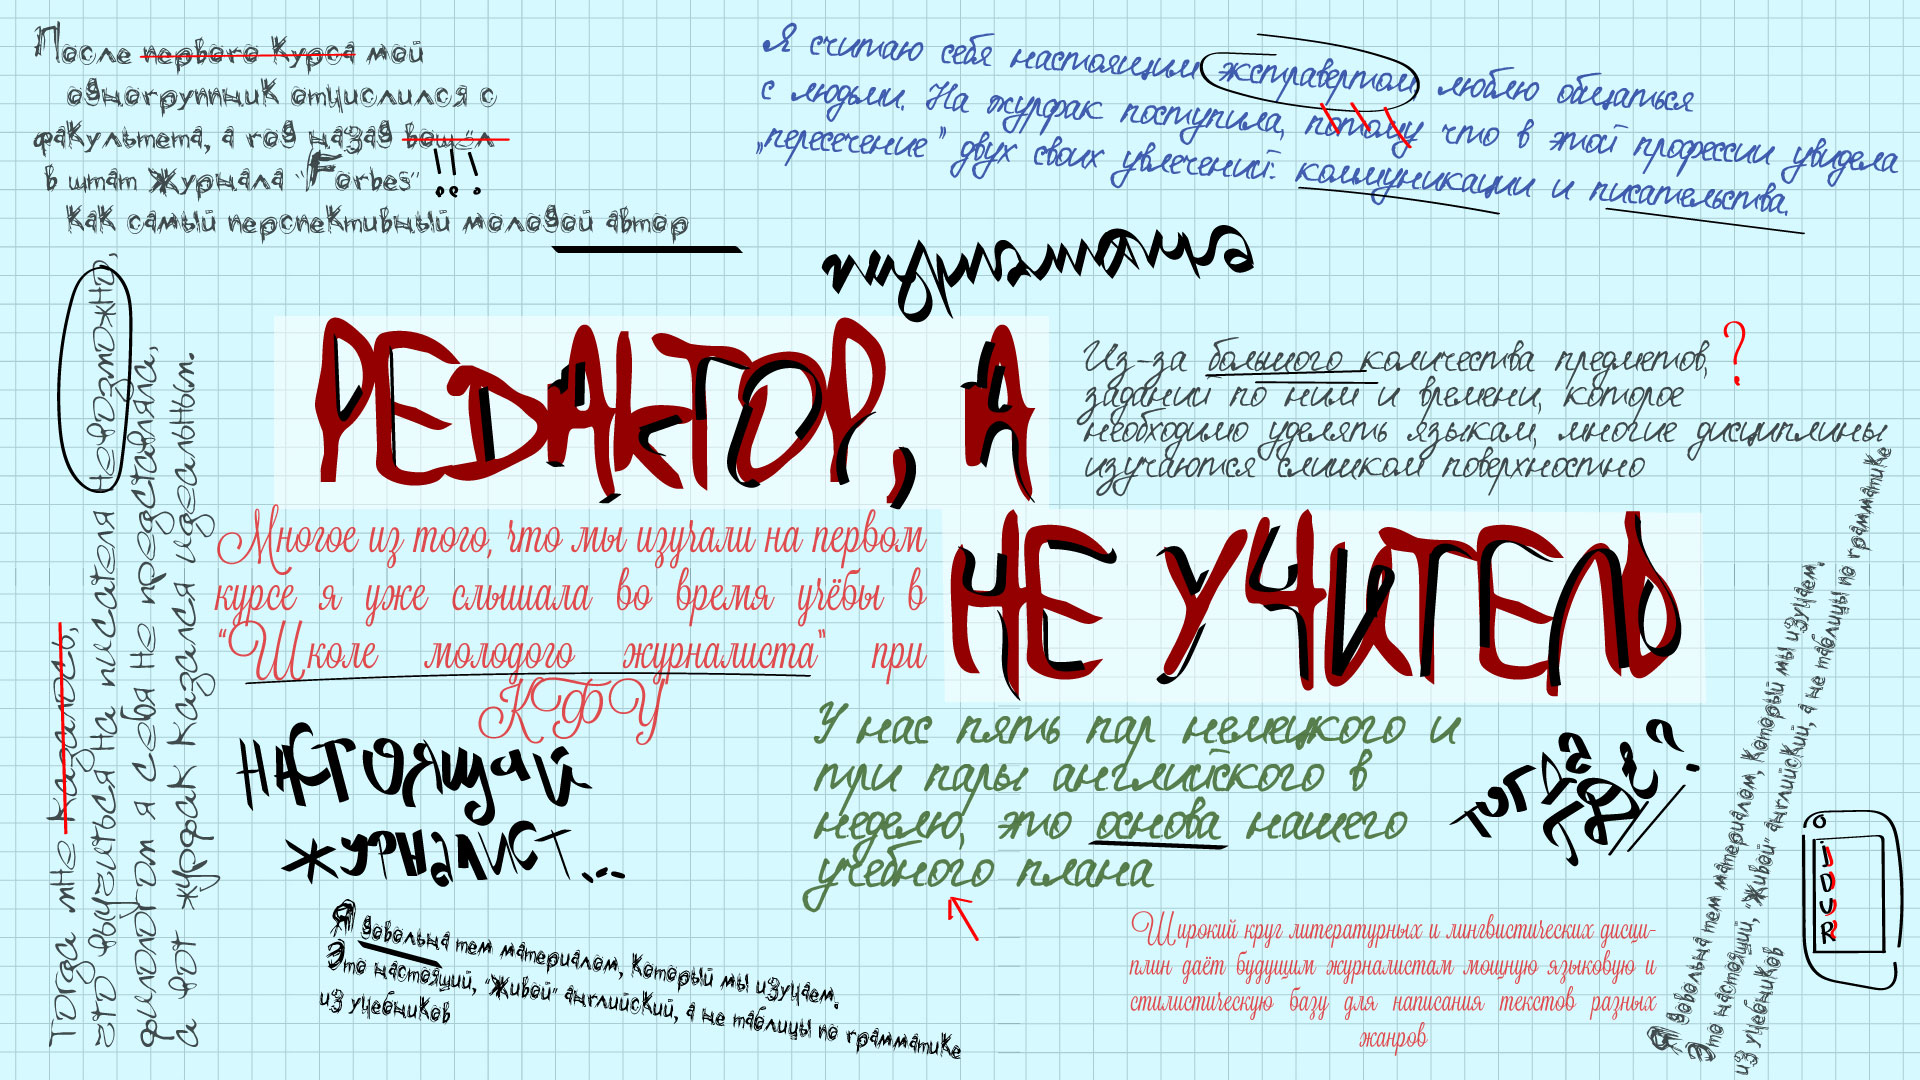 После первого курса мой
одногруппник отчислился с
факультета, а год назад вошёл
в штат журнала "Forbes" !!!
как самый перспективный молодой автор
Я считаю себя настоящим экстравертом, люблю общаться
с людьми. На журфак поступила, потому что в этой профессии увидела
„пересечение" двух своих увлечений: коммуникации и писательства.
РЕДАКТОР, А
НЕ УЧИТЕЛЬ
Из-за большого количества предметов, ?
заданий по ним и времени, которое
необходимо уделять языкам, многие дисциплины
изучаются слишком поверхностно
Тогда мне казалось,
что выучиться на писателя невозможно,
филологом я себя не представляла,
а вот журфак казался идеальным.
Многое из того, что мы изучали на первом
курсе я уже слышала во время учёбы в
“Школе молодого журналиста" при
КФУ
НАСТОЯЩИЙ
ЖУРНАЛИСТ...
У нас пять пар немецкого и
три пары английского в
неделю, это основа нашего
учебного плана
ТОГДА
ГДЕ?
Я довольна тем материалом, который мы изучаем.
Это настоящий, "живой" английский, а не таблицы по грамматике
из учебников
Широкий круг литературных и лингвистических дисци-
плин даёт будущим журналистам мощную языковую и
стилистическую базу для написания текстов разных
жанров
Я довольна тем материалом, который мы изучаем.
Это настоящий, "живой" английский, а не таблицы по грамматике
из учебников
J
D
U
R